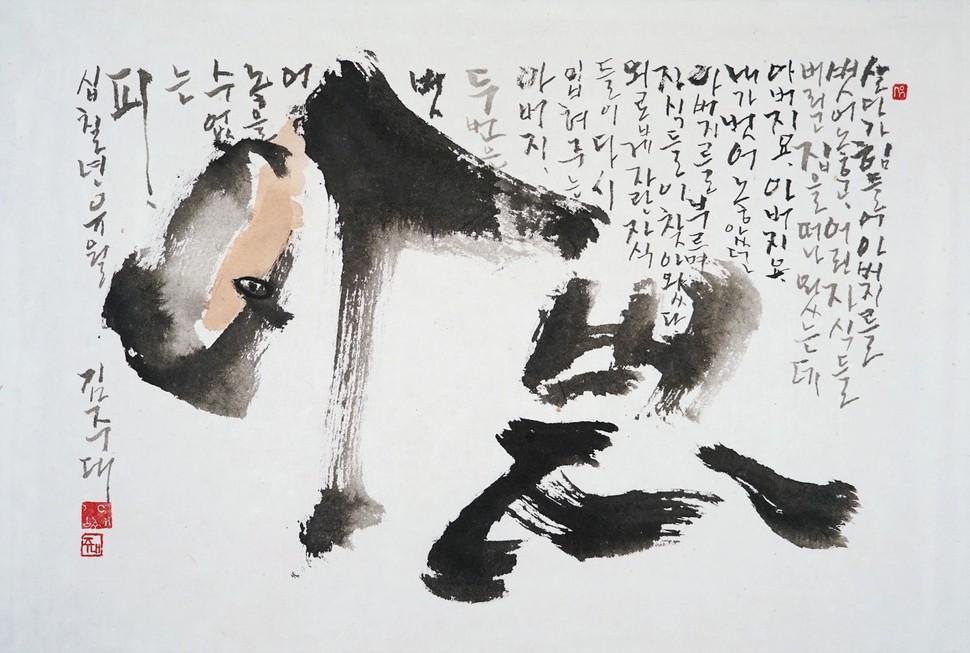 살다가 힘들어 아버지를
벗어놓고, 어린 자식들
버리고 집을 떠나 왔는데
아버지요, 아버지요
내가 벗어 노았던
아버지를 부르며
자식들이 찾아왔다
외로웁게 자란 자식
들이 다시
입혀주는
아버지,
두 번은
벗
어
놓을
수 없
는
피,
십칠년 유월. 김주대